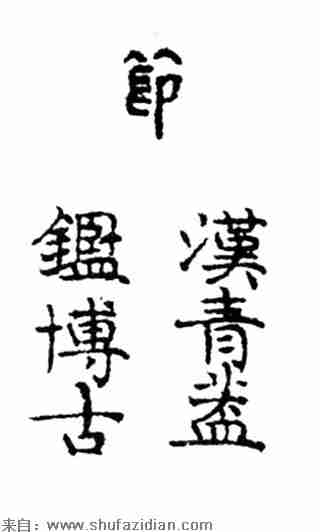 節
漢青蓋
鑑博古
来自：www.shufazidian.com